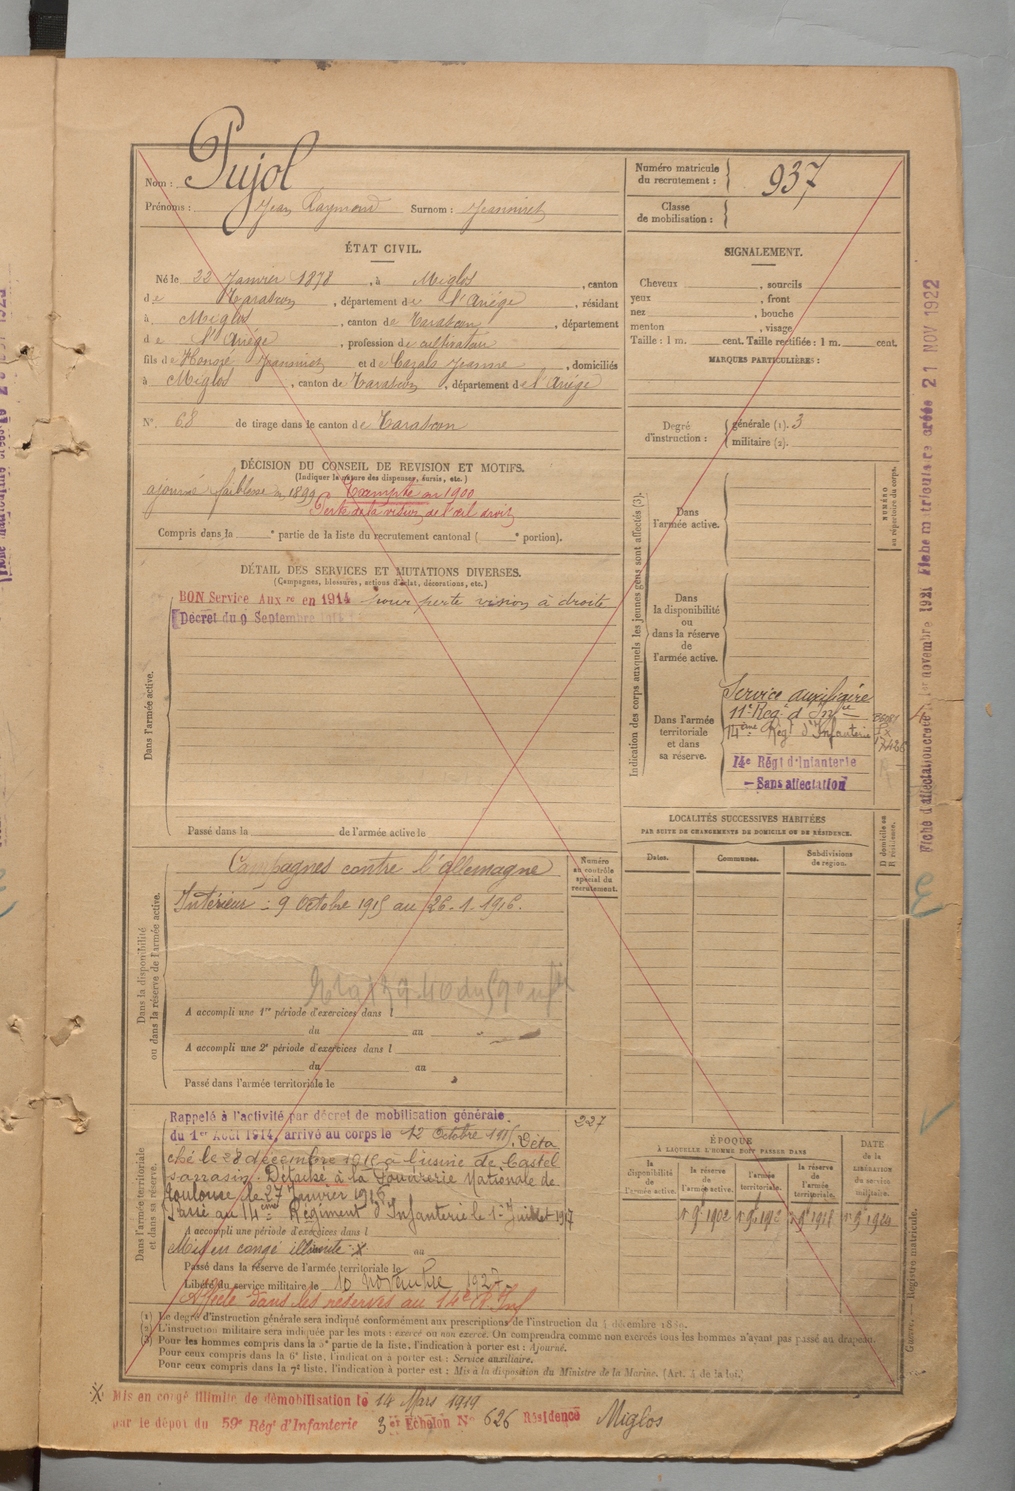 Nom : Pujol
Prénoms : Jean Raymond Surnom : Jeanniret
Numéro matricule du recrutement : 937
Classe de mobilisation :
ÉTAT CIVIL.
Né le 22 Janvier 1878, à Miglos, canton
de Tarascon, département de l'Ariége, résidant
à Miglos, canton de Tarascon, département
de l'Ariége, profession de cultivateur
fils de Honoré Jeanniret et de Cazals Jeanne, domiciliés
à Miglos, canton de Tarascon, département de l'Ariége
N° 68 de tirage dans le canton de Tarascon
SIGNALEMENT.
Cheveux , sourcils
yeux , front
nez , bouche
menton , visage
Taille : 1 m. cent. Taille rectifiée : 1 m. cent.
MARQUES PARTICULIÈRES :
Degré d'instruction : générale (1). 3
militaire (2).
DÉCISION DU CONSEIL DE REVISION ET MOTIFS.
(Indiquer la nature des dispenses, sursis, etc.)
ajourné faiblesse en 1899 Exempté en 1900
Perte de la vision de l'œil droit
Compris dans la e partie de la liste du recrutement cantonal ( e portion).
DÉTAIL DES SERVICES ET MUTATIONS DIVERSES.
(Campagnes, blessures, actions d'éclat, décorations, etc.)
Dans l'armée active.
BON Service Aux re en 1914 pour perte vision à droite
Décret du 9 Septembre 1914
Passé dans la de l'armée active le
Indication des corps auxquels les jeunes gens sont affectés (3).
NUMÉRO au répertoire du corps.
Dans l'armée active.
Dans la disponibilité ou dans la réserve de l'armée active.
Dans l'armée territoriale et dans sa réserve.
Service auxiliaire
11e Reg. d'Infie
14ème Régt d'Infanterie
14e Régt d'Infanterie
— Sans affectation
LOCALITÉS SUCCESSIVES HABITÉES
PAR SUITE DE CHANGEMENTS DE DOMICILE OU DE RÉSIDENCE.
Dates. Communes. Subdivisions de région. D domicile ou R résidence.
Dans la disponibilité ou dans la réserve de l'armée active.
Numéro au contrôle spécial du recrutement.
Campagnes contre l'Allemagne
Intérieur : 9 Octobre 1915 au 26.1.1916.
A accompli une 1re période d'exercices dans l
du au
A accompli une 2e période d'exercices dans l
du au
Passé dans l'armée territoriale le
Dans l'armée territoriale et dans sa réserve.
Rappelé à l'activité par décret de mobilisation générale
du 1er Août 1914, arrivé au corps le 12 Octobre 1915. Déta
ché le 28 décembre 1915 à l'usine de Castel
sarrasin. Détaché à la Poudrerie Nationale de
Toulouse le 27 Janvier 1916
Passé au 14ème Régiment d'Infanterie le 1er Juillet 1917
A accompli une période d'exercices dans l
Mis en congé illimité X au
Passé dans la réserve de l'armée territoriale le
Libéré du service militaire le 10 novembre 1927
Affecté dans les réserves au 14e R Inf
227
ÉPOQUE À LAQUELLE L'HOMME DOIT PASSER DANS
la disponibilité de l'armée active. la réserve de l'armée active. l'armée territoriale. la réserve de l'armée territoriale.
DATE de la LIBÉRATION du service militaire.
(1) Le degré d'instruction générale sera indiqué conformément aux prescriptions de l'instruction du 4 décembre 1889.
(2) L'instruction militaire sera indiquée par les mots : exercé ou non exercé. On comprendra comme non exercés tous les hommes n'ayant pas passé au drapeau.
(3) Pour les hommes compris dans la 5e partie de la liste, l'indication à porter est : Ajourné.
Pour ceux compris dans la 6e liste, l'indication à porter est : Service auxiliaire.
Pour ceux compris dans la 7e liste, l'indication à porter est : Mis à la disposition du Ministre de la Marine. (Art. 4 de la loi.)
X Mis en congé illimité de démobilisation le 14 Mars 1919
par le dépôt du 59e Régt d'Infanterie 3er Échelon N° 626 Résidence Miglos
Registre matricule.
21 NOV 1922